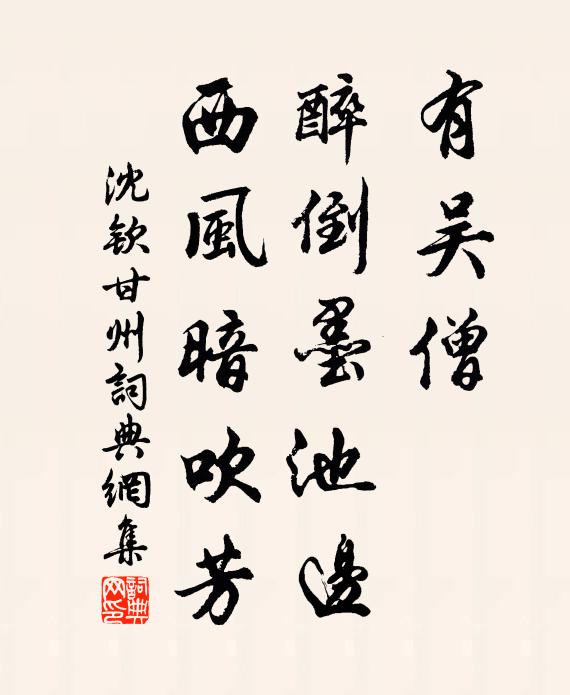 有吴僧
醉倒墨池邊
西風暗吹芳
沈欽甘州詞典網集
詞典
网印